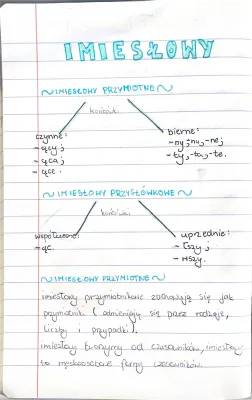 IMIESŁOWY
~IMIESŁOWY PRZYMIOTNE~
końcówki
czynne: bierne:
-ący; -ny; nu, -ne;
-ąca; -ty, -ta, -te.
-ące.
~IMIESŁOWY PRZYSŁÓWKOWE~
końcówki
współczesne: uprzednie:
-ąc. -łszy;
-wszy.
~IMIESŁOWY PRZYMIOTNE~
imiesłowy przymiotnikowe zachowują się jak
przymiotnik (odmieniają się przez rodzaje,
liczby i przypadki).
imiesłowy tworzymy od czasowników, imiesłowy
to nieosobowe formy czasowników.